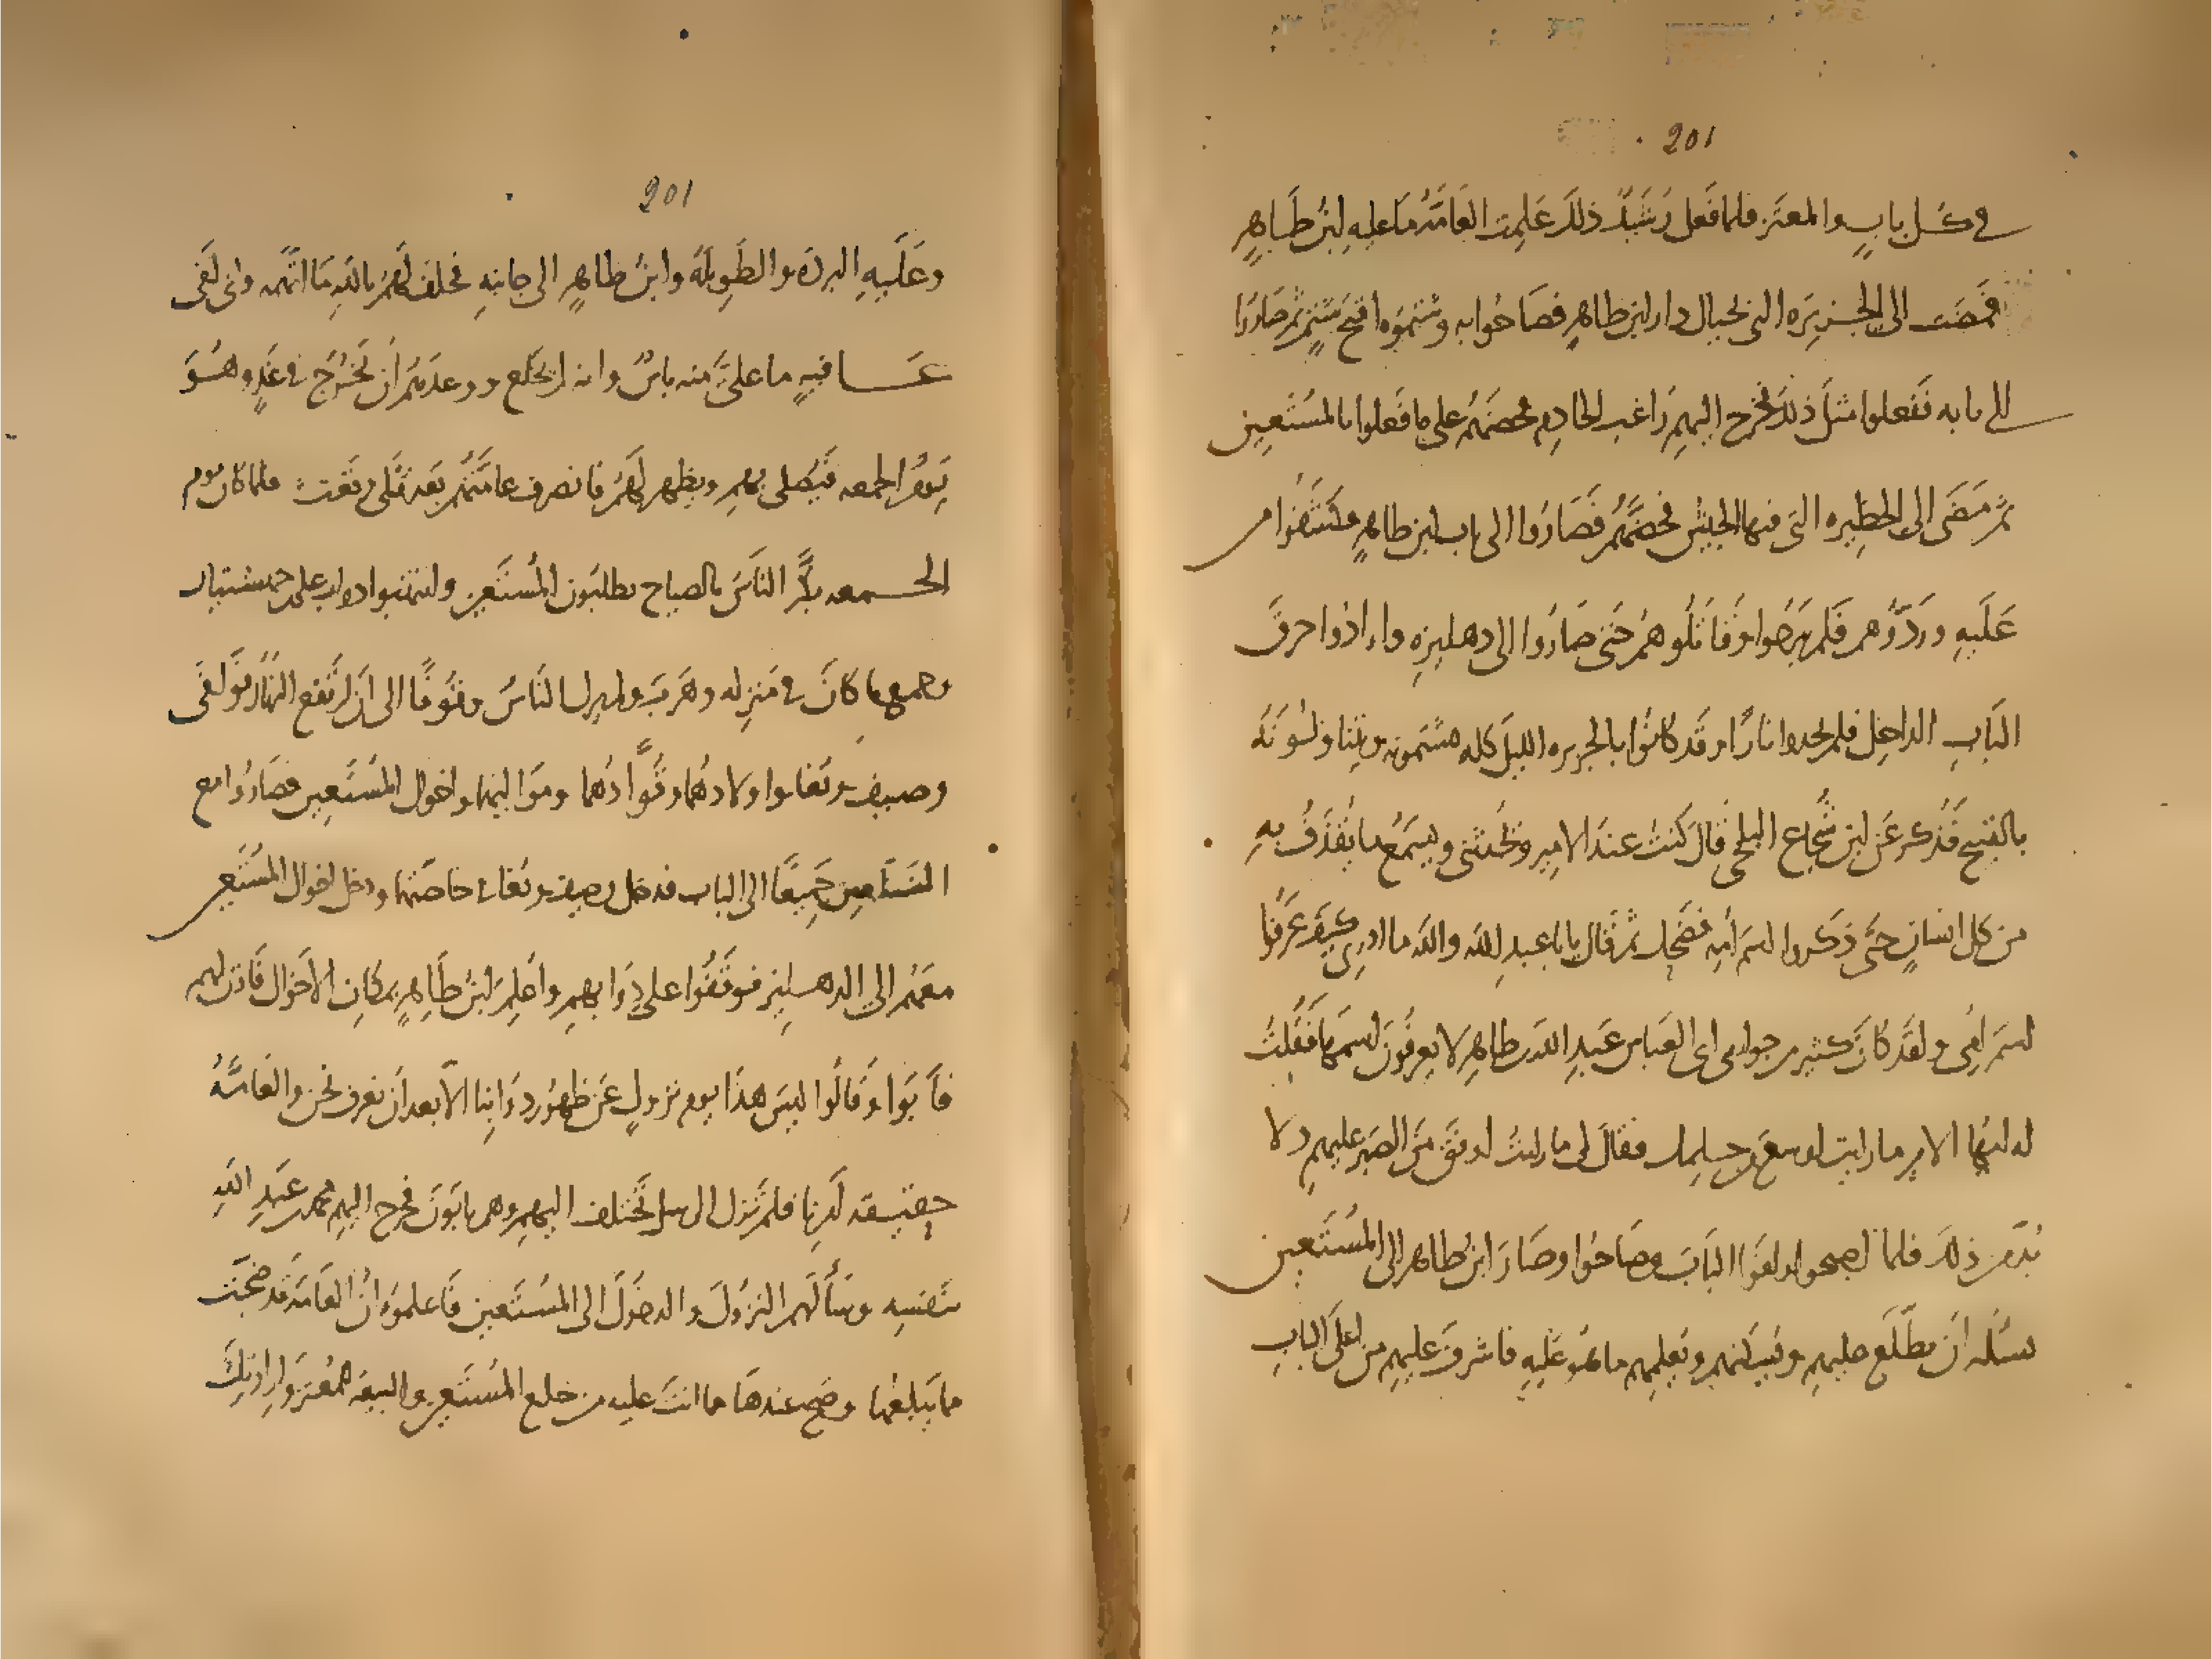 201
في كل باب والمعتز فلما فعل رشيد ذلك علمت العامة ما عليه ابن طاهر
فمضت الى الجزيره التي بحيال دار ابن طاهر فصاحوا به وشتموه اقبح شتم ثم صاروا
الى بابه ففعلوا مثل ذلك فخرج اليهم راغب الخادم فحضهم على ما فعلوا بالمستعين
ثم مضى الى الحظيره التي فيها الجيش فحضهم فصاروا الى باب ابن طاهر فكشفوا من
عليه وردوهم فلم يبرحوا وقاتلوهم حتى صاروا الى دهليزه وارادوا حرق
الباب الداخل فلم يجدوا نارا وقد كانوا بالجزيره الليل كله يشتمونه ويتناولونه
بالقبيح فذكر عن ابن شجاع البلخي قال كنت عند الامير وهو يحدثني ويسمع ما يقذف به
من كل انسان حتى ذكروا اسم امه فضحك ثم قال يابا عبد الله والله ما ادري كيف عرفوا
اسم امي ولقد كان كثير من جواري ابي العباس عبد الله بن طاهر لا يعرفون اسمها فقلت
له ايها الامير ما رايت اوسع من حلمك فقال لي ما رايت اوفق من الصبر عليهم ولا
بد من ذلك فلما اصبحوا وافوا الباب وصاحوا وصار ابن طاهر الى المستعين
يسئله ان يطلع عليهم ويسكنهم ويعلمهم ما هو عليه فاشرف عليهم من اعلى الباب
201
وعليه البردة والطويلة وابن طاهر الى جانبه فحلف لهم بالله ما اتهمه واني لفي
عافيه ما علي منه باس وانه لم يخلع ووعدهم ان يخرج في غد وهو
يوم الجمعه فيصلي بهم ويظهر لهم فانصرف عامتهم بعد قتلى وقعت فلما كان يوم
الجمعه بكر الناس بالصياح يطلبون المستعين وانتهبوا دواب علي بن جهشيار
وجميع ما كان في منزله وهرب ولم يزل الناس وقوفا الى ان ارتفع النهار فوافى
وصيف وبغا واولادهما وقوادهما ومواليهما واخوال المستعين فصاروا مع
المستعين جميعا الى الباب فدخل وصيف وبغا في خاصتهما ودخل اخوال المستعين
معهم الى الدهليز فوقفوا على دوابهم واعلم ابن طاهر بمكان الاخوال فاذن لهم
فابوا وقالوا ليس هذا يوم نزول عن ظهور دوابنا الا بعد ان نعرف نحن والعامة
حقيقه امرنا فلم تزل الرسل تختلف اليهم وهم يابون فخرج اليهم محمد بن عبد الله
بنفسه وسألهم النزول والدخول الى المستعين فاعلموه ان العامة قد ضجت
مما يبلغها وصح عندها ما انت عليه من خلع المستعين والبيعه للمعتز وارادتك